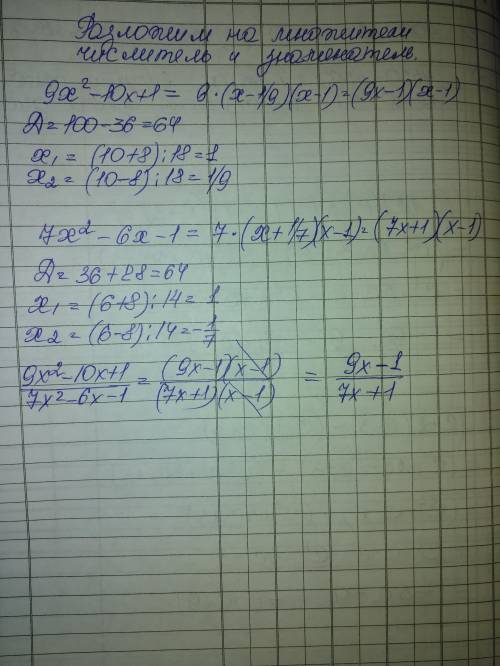 Разложим на множители
числитель и знаменатель.
9x²-10x+1 = 9·(x-1/9)(x-1)=(9x-1)(x-1)
Д=100-36=64
x₁ = (10+8):18=1
x₂ = (10-8):18=1/9
7x²-6x-1= 7·(x+1/7)(x-1)=(7x+1)(x-1)
Д=36+28=64
x₁ = (6+8):14= 1
x₂ = (6-8):14=-1/7
(9x²-10x+1)/(7x²-6x-1) = ((9x-1)(x-1))/((7x+1)(x-1)) = (9x-1)/(7x+1)